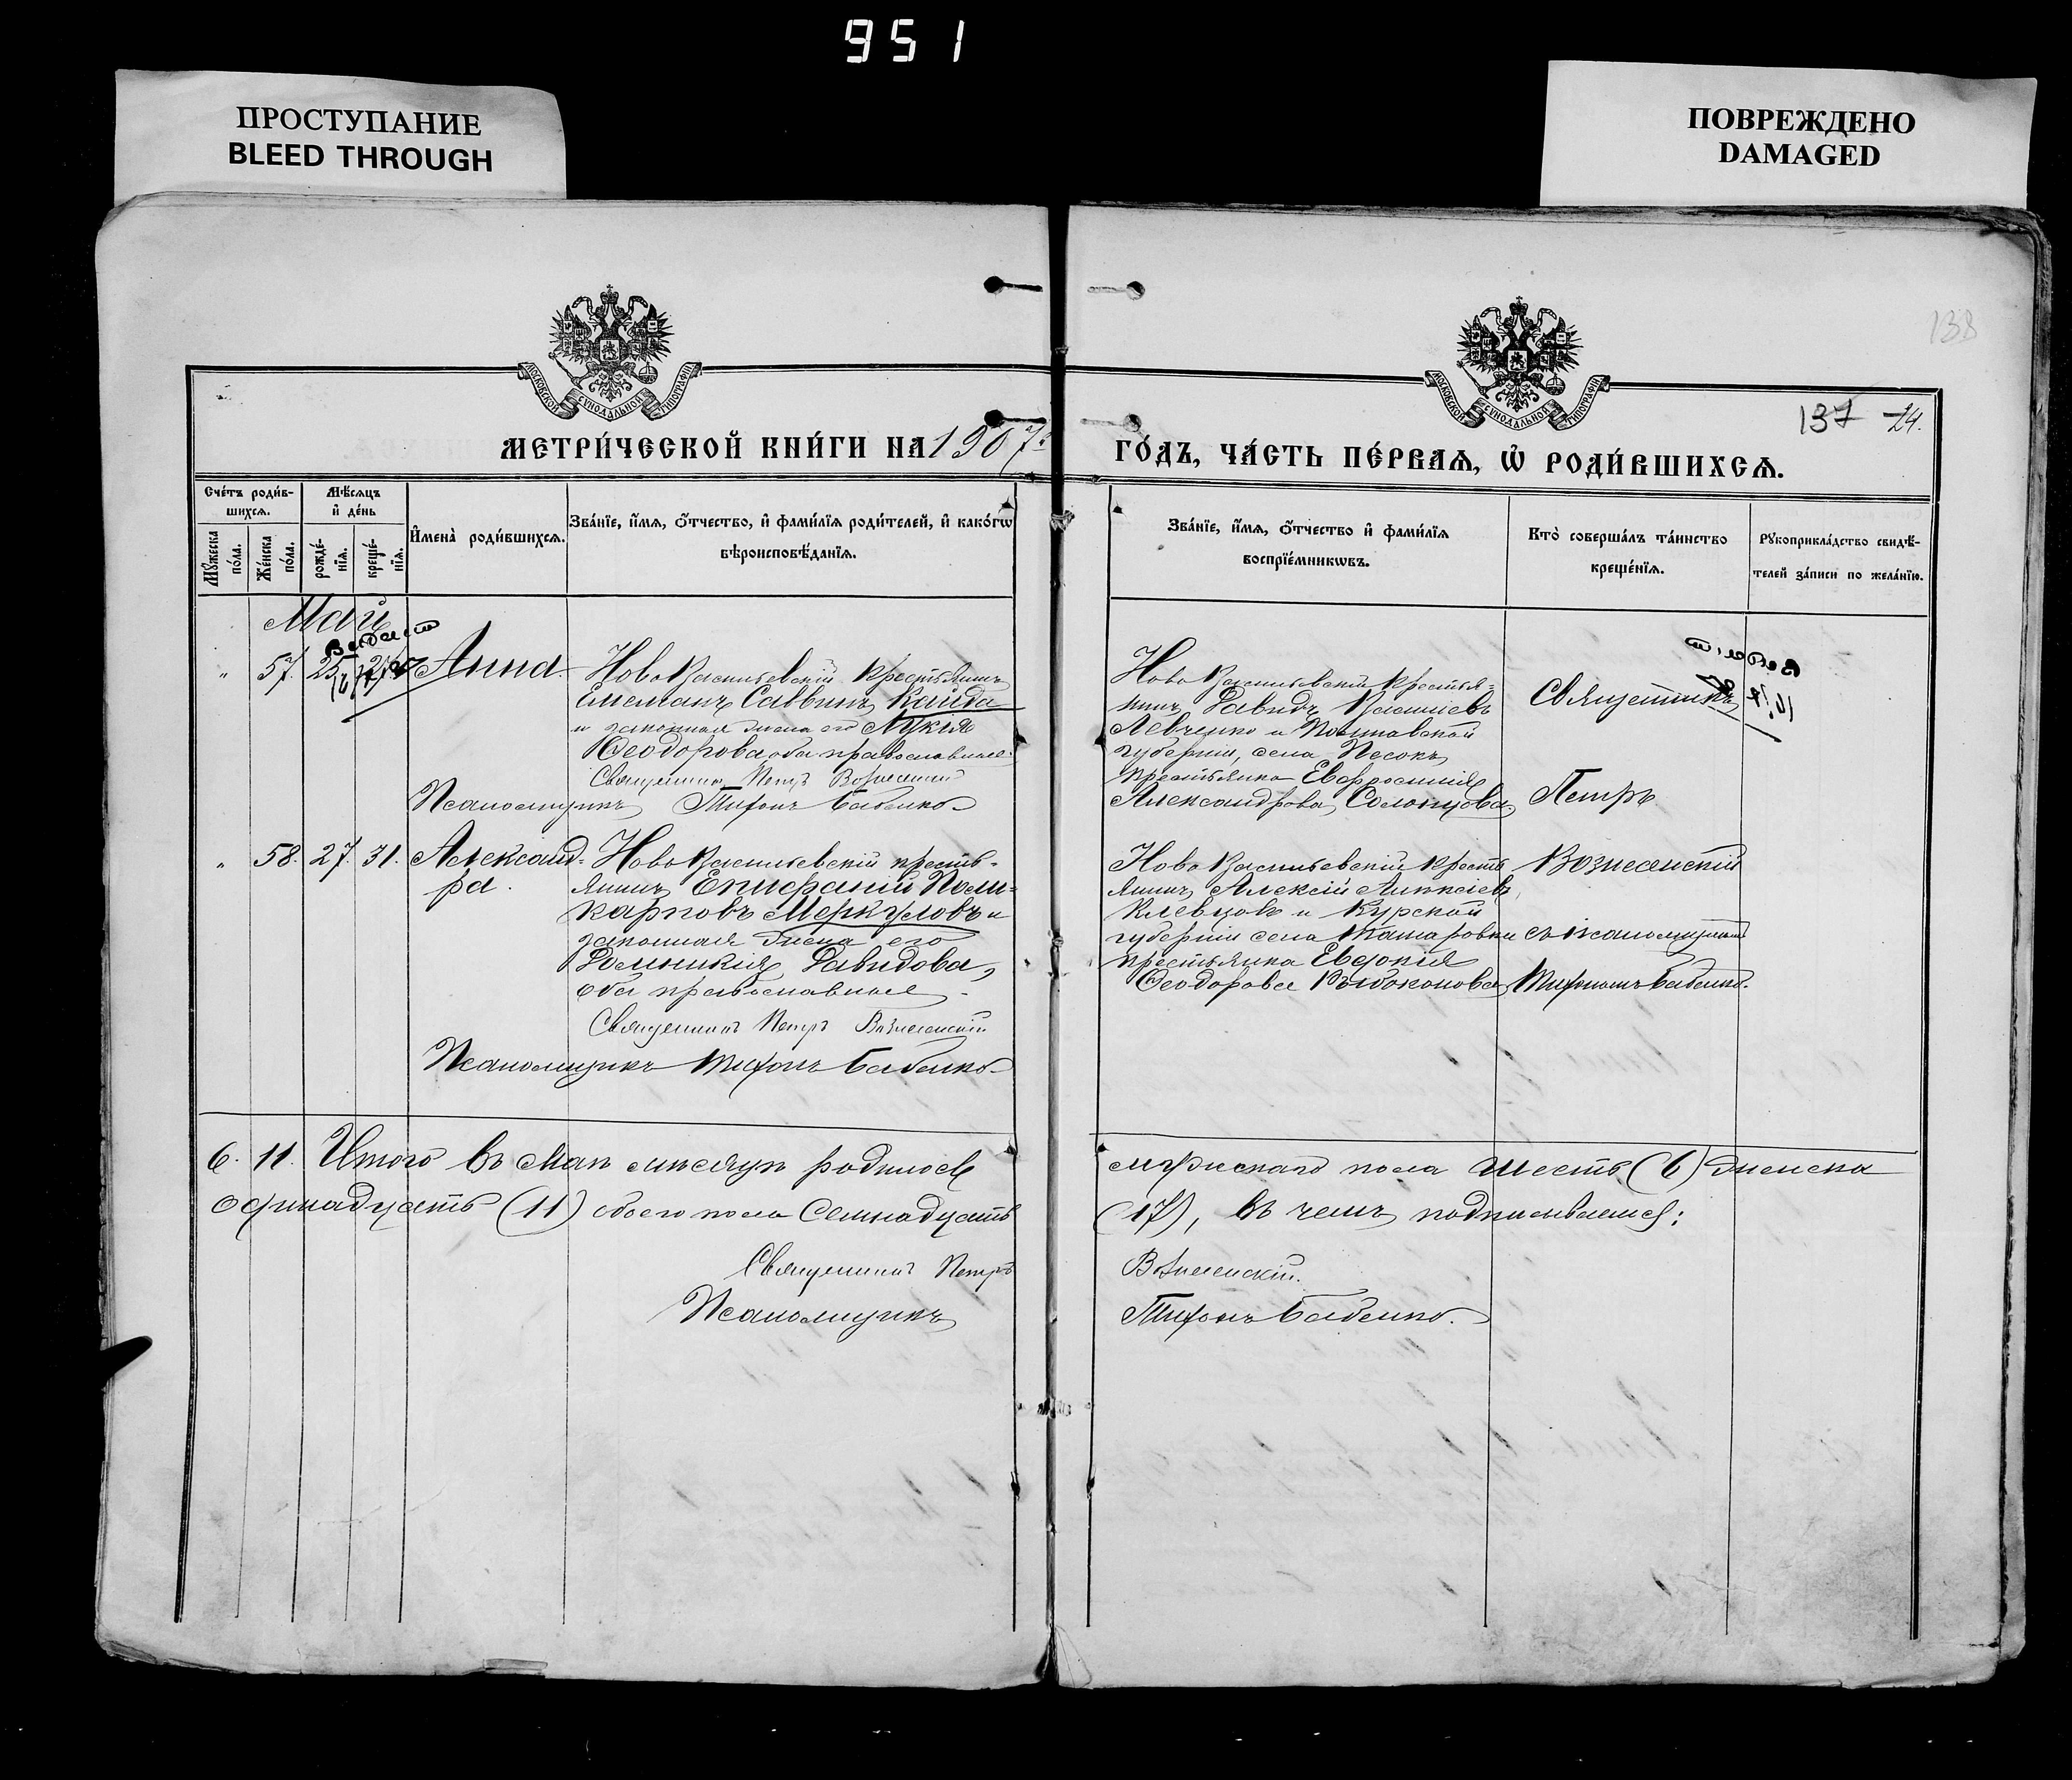 951
ПРОСТУПАНИЕ
BLEED THROUGH
ПОВРЕЖДЕНО
DAMAGED
138
МОСКОВСКОЙ СѴНОДАЛЬНОЙ ТИПОГРАФІИ
МОСКОВСКОЙ СѴНОДАЛЬНОЙ ТИПОГРАФІИ
137 24.
МЕТРИ́ЧЕСКОЙ КНИ́ГИ НА 1907й
ГО́ДЪ, ЧА́СТЬ ПЕ́РВАѦ, Ѡ҆ РОДИ́ВШИХСѦ.
Сче́тъ роди́в-
шихсѧ.
Мꙋ́жеска по́ла.
Же́нска по́ла.
Мѣ́сѧцъ
и҆ де́нь
рожде́-
нїѧ.
креще́-
нїѧ.
И҆мена̀ роди́вшихсѧ.
Зва́нїе, и҆́мѧ, ѻ҆́тчество, и҆ фами́лїѧ роди́телей, и҆ како́гѡ
вѣроисповѣ́данїѧ.
Зва́нїе, и҆́мѧ, ѻ҆́тчество и҆ фами́лїѧ
воспрїе́мникѡвъ.
Кто̀ соверша́лъ та́инство
креще́нїѧ.
Рꙋкоприкла́дство свидѣ́-
телей за́писи по жела́нїю.
Май
" 57. 25. 27. Анна.
Ново Васильевскій крестьянинъ
Емельянъ Саввинъ Кайда
и законная жена его Лукія
Ѳеодорова, оба православные.
Священникъ Петръ Вознесенскій
Псаломщикъ Тихонъ Бабенко
Ново Васильевскій крестья-
нинъ Давидъ Василіевъ
Левченко и Полтавской
губерніи, села Песокъ
крестьянка Евфросинія
Александрова Солонцова.
Священникъ
Петръ
" 58. 27. 31. Александ-
ра.
Ново Васильевскій кресть-
янинъ Епифаній Поли-
карповъ Меркуловъ и
законная жена его
Домникія Давидова,
оба православные.
Священникъ Петръ Вознесенскій
Псаломщикъ Тихонъ Бабенко
Ново Васильевскій кресть
янинъ Алексій Алексіевъ
Клевцовъ и Курской
губерніи села
крестьянка Евдокія
Ѳеодорова
Вознесенскій
съ псаломщикомъ
Тихономъ Бабенко.
6. 11. Итого въ маѣ мѣсяцѣ родилось
мужскаго пола шесть (6) женска
одинадцать (11) обоего пола семнадцать
(17), въ чемъ подписываемся:
Священникъ Петръ
Вознесенскій.
Псаломщикъ
Тихонъ Бабенко.